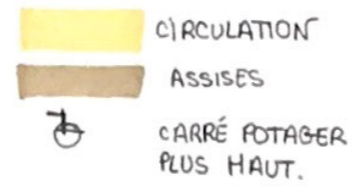 CIRCULATION
ASSISES
CARRÉ POTAGER
PLUS HAUT.